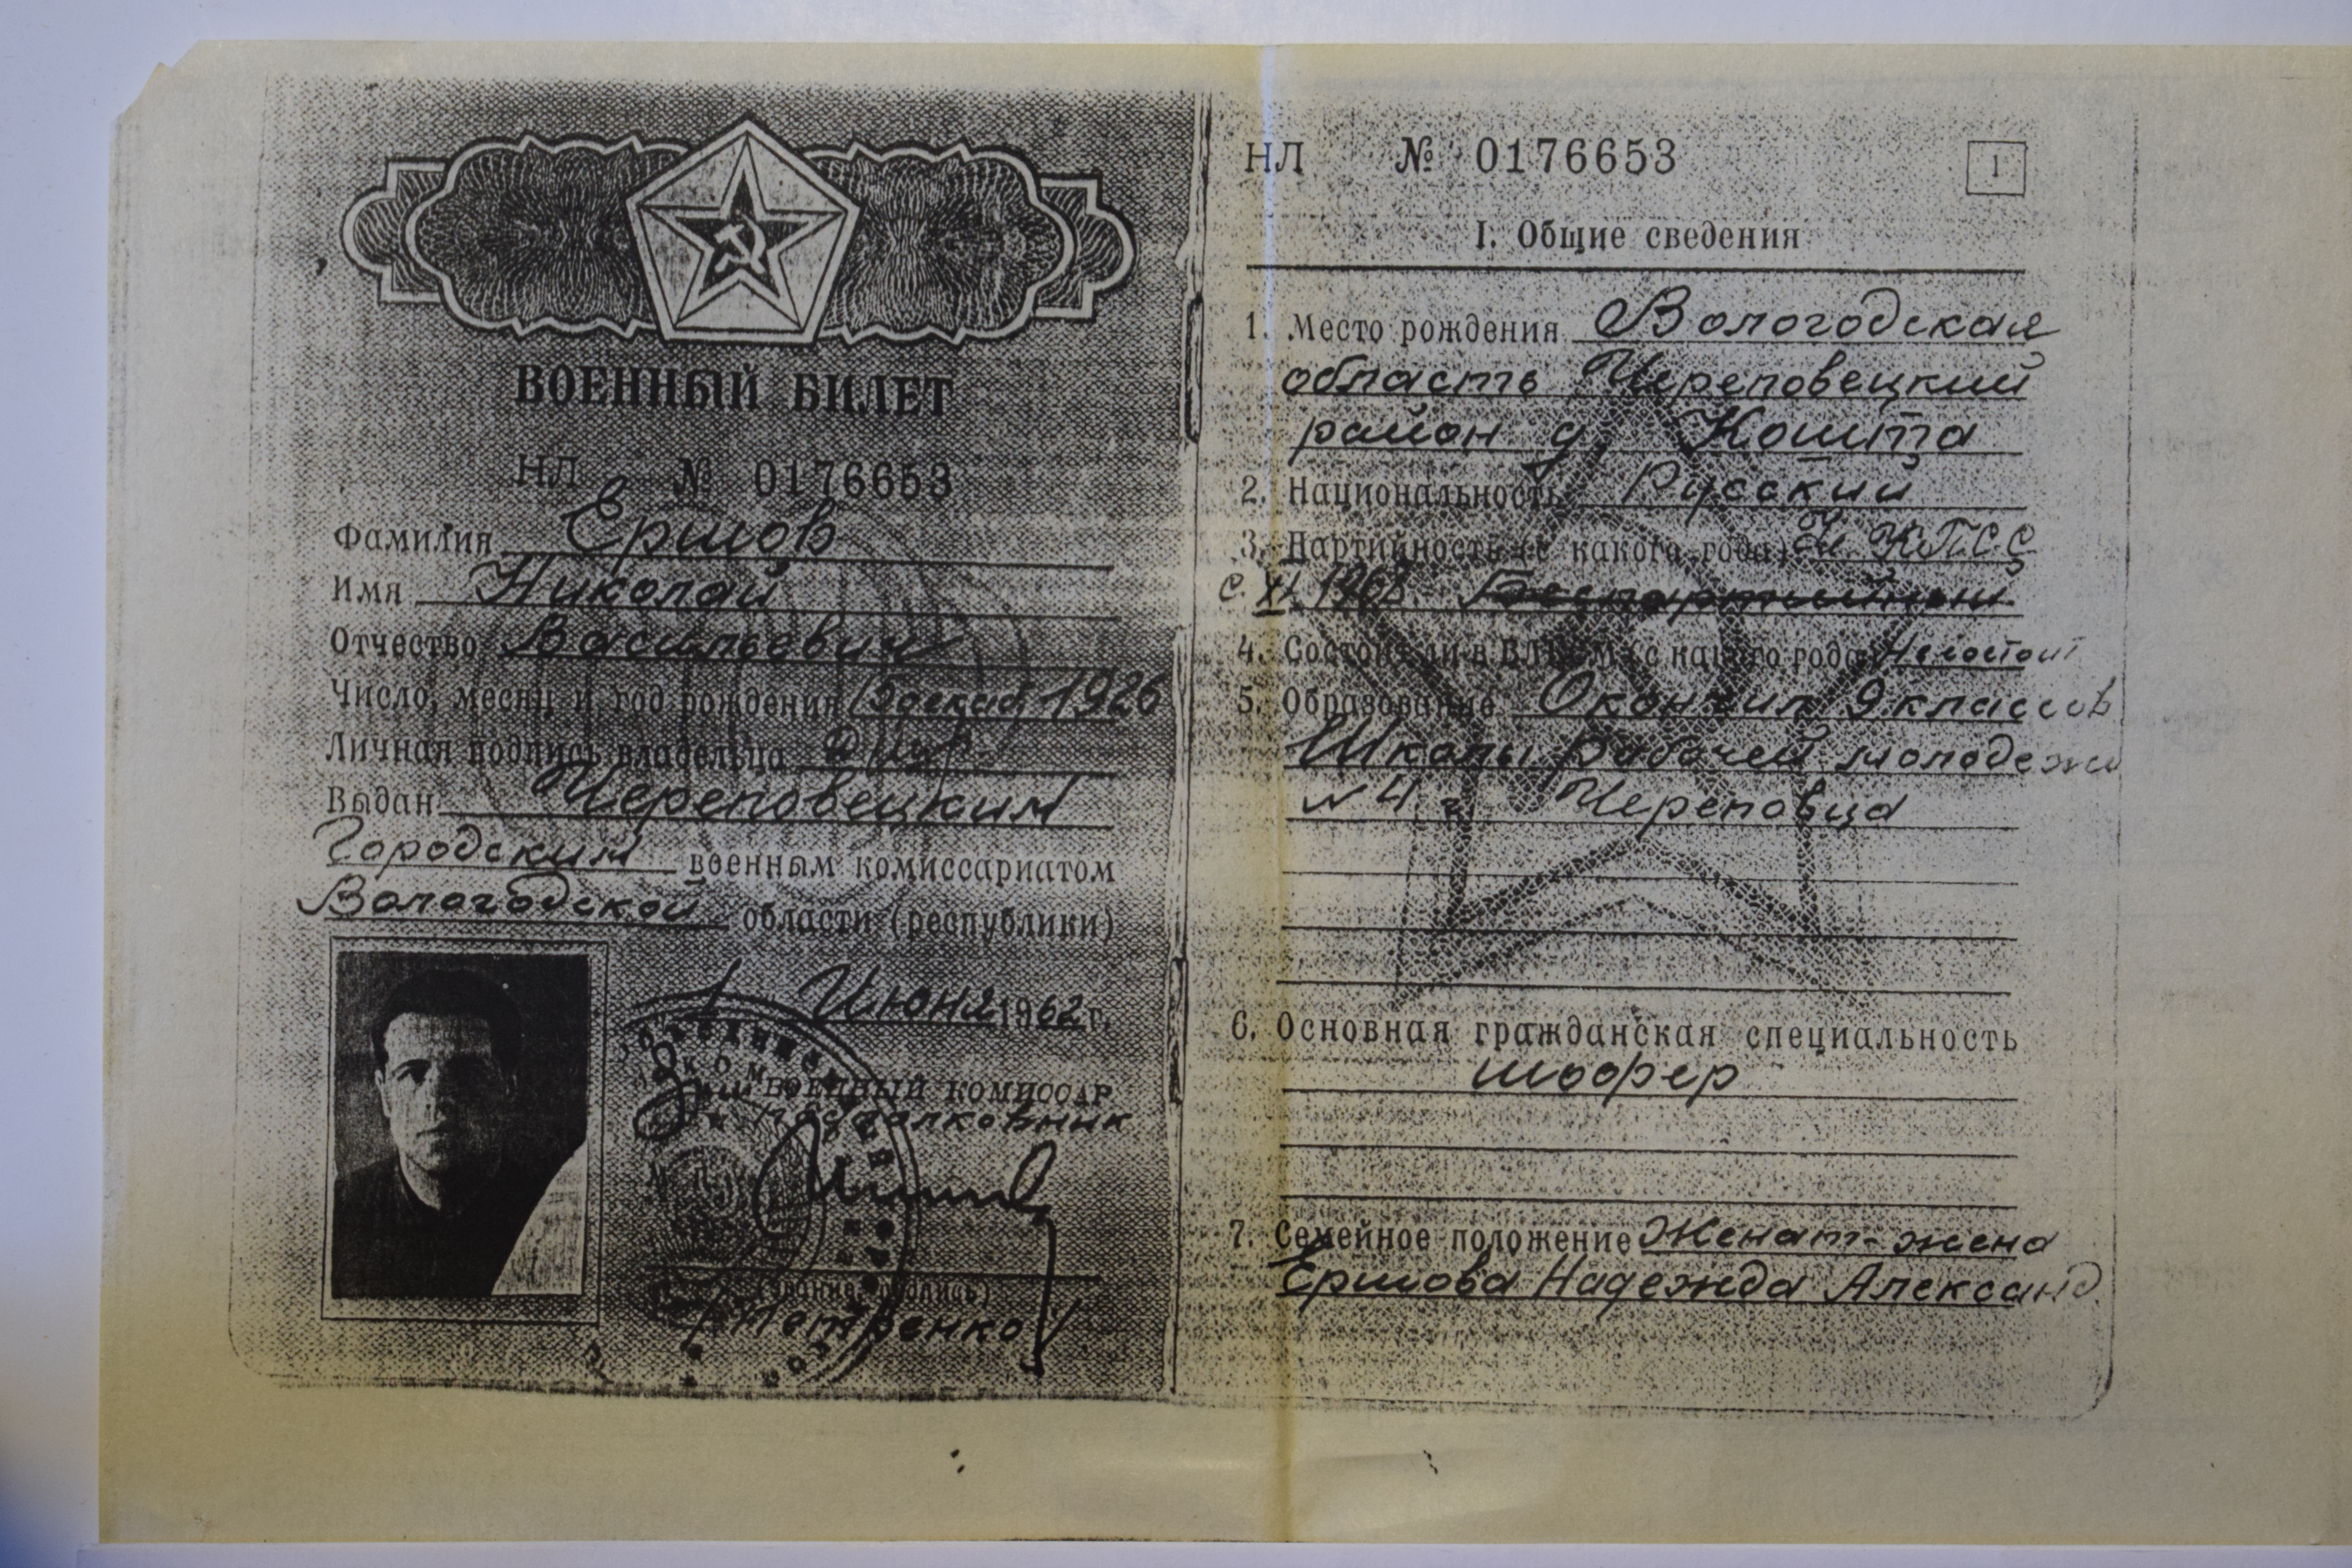 ВОЕННЫЙ БИЛЕТ
НЛ № 0176653
Фамилия Ершов
Имя Николай
Отчество Васильевич
Число, месяц и год рождения 15 декаб 1926
Личная подпись владельца
Выдан Череповецким
Городским военным комиссариатом
Вологодской области (республики)
1 Июня 1962 г.
ВОЕННЫЙ КОМИССАР
подполковник
М. П.
(звание, подпись)
/Петренко/
НЛ № 0176653
1
I. Общие сведения
1. Место рождения Вологодская
область Череповецкий
район д. Кошта
2. Национальность Русский
3. Партийность (с какого года) Чл. КПСС
с XI. 1968. Беспартийный
4. Состоял ли в ВЛКСМ и с какого года Не состоит
5. Образование Окончил 9 классов
Школы рабочей молодежи
№ 4 г. Череповца
6. Основная гражданская специальность
шофер
7. Семейное положение Женат - жена
Ершова Надежда Александ